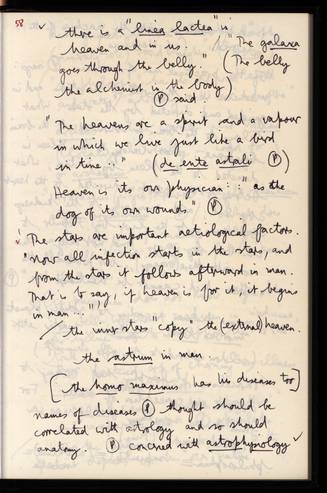 58
✓ there is a "linea lactea" in
heaven and in us. "The galaxa
goes through the belly" (The belly
the alchemist in the body)
Ⓟ said.
"The heavens are a spirit and a vapour
in which we live just like a bird
in time .." (de ente astrali Ⓟ)
Heaven is its own physician : "as the
dog of its own wounds" Ⓟ
The stars are important aetiological factors.
"now all infection starts in the stars, and
from the stars it follows afterward in man.
That is to say, if heaven is for it, it begins
in man ..."
/ the inner stars "copy" the (external) heaven.
the astrum in man
[the homo maximus has his diseases too]
names of diseases Ⓟ thought should be
correlated with astrology and so should
anatomy. Ⓟ coined with astrophysiology ✓